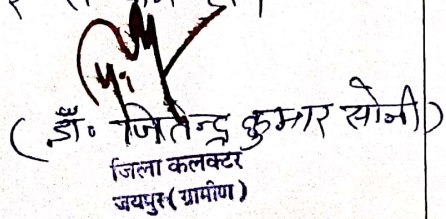 (डॉ. जितेन्द्र कुमार सोनी)
जिला कलक्टर
जयपुर (ग्रामीण)